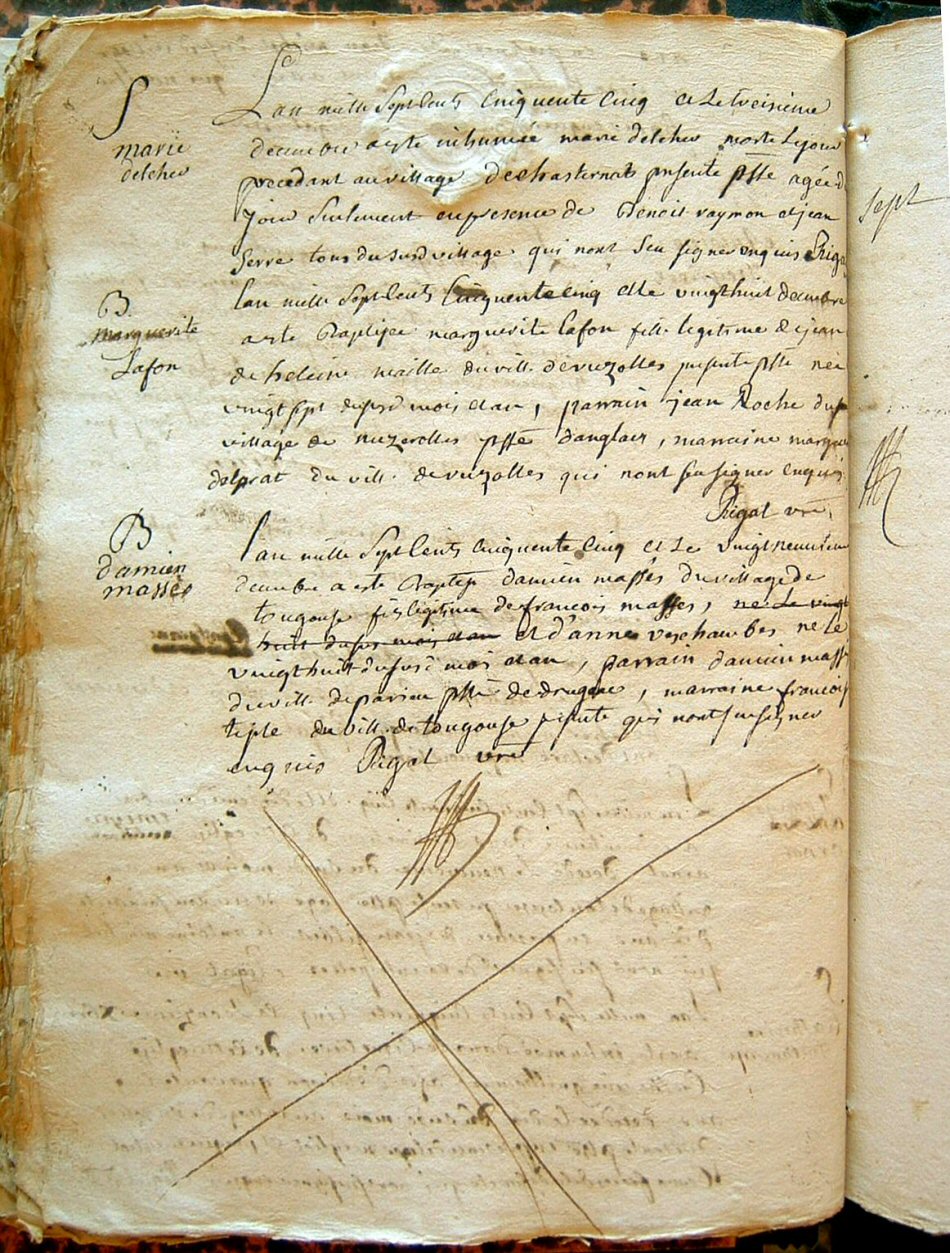 S
marie
delcher
Lan mille Sept Cents Cinquente Cinq et Le treisieme
decembre a este inhumée marie delcher morte Le jour
precedant au village de present psse agée d
jour Seulement en presence de Benoit raymon et jean
Serre tous du susd village qui nont Seu signer enquis Riga
B
marguerite
Lafon
Lan mille Sept Cents Cinquente Cinq et le vingt huit decembre
a este Baptisee marguerite Lafon fille legitime de jean
de heleine maille du vill. de vezolles presente psse née
vingt sept dusd mois et an, parrain jean Roche du
village de psse danglars, marraine margue
delprat du vill. de vezolles qui nont seu signer enquis
Rigal vre
B
damien
massés
Lan mille Sept Cents Cinquente Cinq et Le vingt neuvieme
decembre a este Baptisé damien massés du village de
tougouse fils legitime de francois masses, ne Le vingt
huit dusus mois et an et d'anne veschambes né Le
vingt huit dusus mois et an, parrain damien mass
du vill. de parieu psse de drugeac, marraine francois
teple du vill. de tougouse presente qui nont seu signer
enquis Rigal vre
Sept